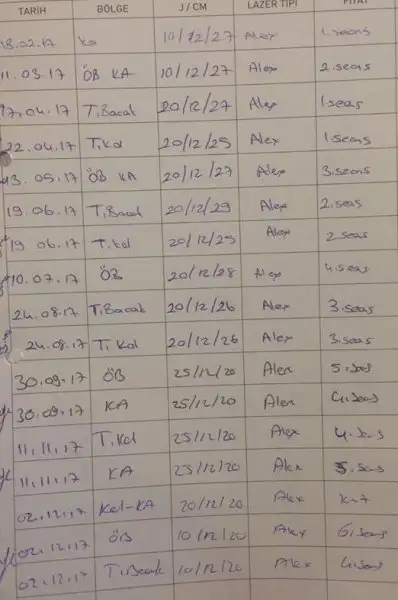 TARİH BÖLGE J / CM LAZER TİPİ FİYAT
18.02.17 KA 10/12/27 Alex 1.seans
11.03.17 ÖB KA 10/12/27 Alex 2.seans
17.04.17 T.Bacak 20/12/27 Alex 1.seas
22.04.17 T.Kol 20/12/25 Alex 1.seans
13.05.17 ÖB KA 20/12/27 Alex 3.seans
19.06.17 T.Bacak 20/12/29 Alex 2.seas
19 06.17 T.kol 20/12/25 Alex 2 seas
10.07.17 ÖB 20/12/28 Alex 4.seas
24.08.17 T.Bacak 20/12/26 Alex 3.seas
24.08.17 T. Kol 20/12/26 Alex 3.seas
30.09.17 ÖB 25/12/20 Alex 5.seas
30.09.17 KA 25/12/20 Alex 4.seas
11.11.17 T.Kol 25/12/20 Alex 4.
11.11.17 KA 25/12/20 Alex 5.
02.12.17 Kol-KA 20/12/20 Alex
02.12.17 ÖB 10/12/20 Alex 6.seas
02.12.17 T.Bacak 10/12/20 Alex 4.seas